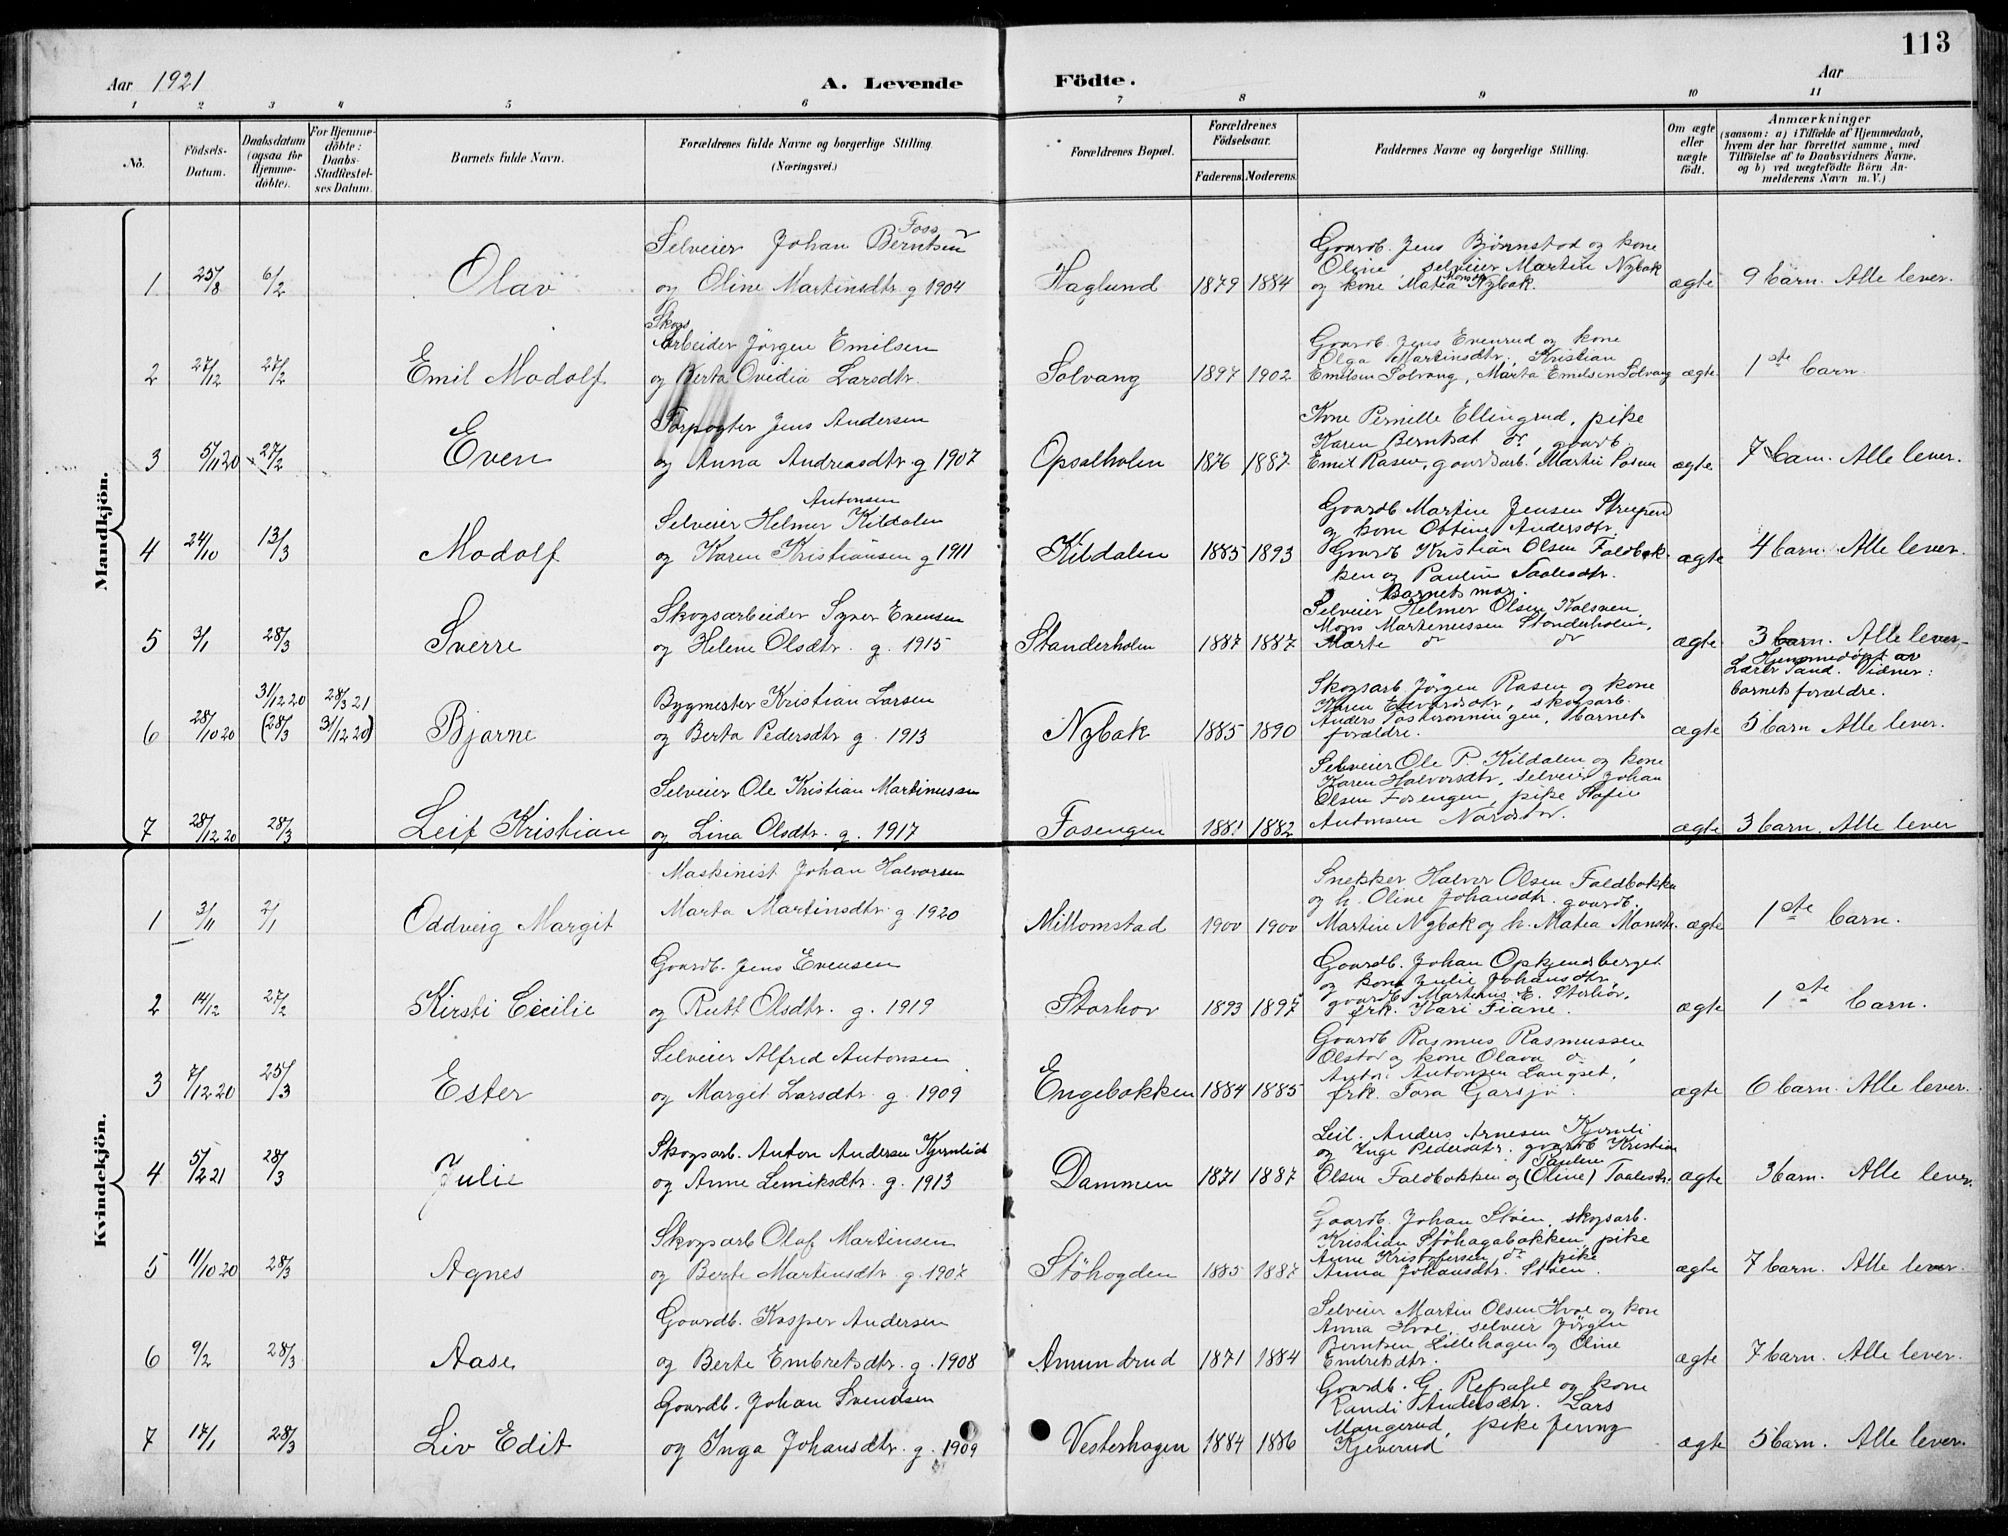 113
Aar 1921
A. Levende Födte.
Aar
1 2 3 4 5 6 7 8 9 10 11
No.
Födsels-Datum.
Daabsdatum (ogsaa for Hjemme-döbte).
For Hjemme-döbte: Daabs-Stadfestel-ses Datum.
Barnets fulde Navn.
Forældrenes fulde Navne og borgerlige Stilling. (Næringsvei.)
Forældrenes Bopæl.
Forældrenes Födselsaar.
Faderens. Moderens.
Faddernes Navne og borgerlige Stilling.
Om ægte eller uægte födt.
Anmærkninger
(saasom: a) i Tilfælde af Hjemmedaab,
hvem der har forrettet samme, med
Tilföielse af to Daabsvidners Navne,
og b) ved uægtefödte Börn An-
melderens Navn m.V.)
Mandkjön.
1 25/8 6/2 Olav
Selveier Johan Berntsen Foss
og Oline Martinsdtr. g 1904
Haglund 1879 1884
Gaardb. Jens Bjørnstad og kone
Oline, selveier Martin Nybak
og kone Matea Monsdtr Nybak.
ægte 9 barn. Alle lever.
2 27/12 27/2 Emil Modolf
Skogs
Arbeider Jörgen Emilsen
og Berta Ovedia Larsdtr.
Solvang 1897 1902
Gaardb. Jens Evenrud og kone
Olga Martinsdtr., Kristian
Emilsen Solvang, Marta Emilsen Solvang
ægte 1ste barn.
3 5/11 20 27/2 Even
Forpagter Jens Andersen
og Anna Andreasdtr. g 1907
Opsalholen 1876 1887
Kone Pernille Ellingrud, pike
Karen Berntsdt do, gaardb.
Emil Rasen, gaardsarb. Martin
ægte 7 barn. Alle lever.
4 24/10 13/3 Modolf
Antonsen
Selveier Helmer Kildalen
og Karen Kristiansen g 1911
Kildalen 1885 1893
Gaardb Martin Jensen
og kone Ottine Andersdtr.
Gaardb Kristian Olsen Faldbak-
ken og Pauline Taalesdtr.
Barnets mor.
ægte 4 barn. Alle lever.
5 3/1 28/3 Sverre
Skogsarbeider Syver Evensen
og Helene Olsdtr. g. 1915
Standerholen 1887 1887
Selveier Helmer Olsen Kalsveen
Mons Martinussen Standerholen,
Marte do do
ægte 3 barn. Alle lever.
6 28/10 20 31/12 20 (28/3 28/3 21 31/12 20) Bjarne
Bygmester Kristian Larsen
og Berta Pedersdtr g. 1913
Nybak 1885 1890
Skogsarb Jörgen Rasen og kone
Karen Edvardsdtr, skogsarb.
Anders, barnets
forældre.
Hjemmedöpt av
Lærer Sand. Vidner:
barnets forældre.
ægte 5 barn Alle lever.
7 28/12 20 28/3 Leif Kristian
Selveier Ole Kristian Martinussen
og Lina Olsdtr. g. 1917
Fosengen 1881 1882
Selveier Ole P. Kildalen og kone
Karen Halvorsdtr, selveier Johan
Olsen Fosengen, pike Hafie
Antonsen Nordstov.
ægte 3 barn. Alle lever
Kvindekjön.
1 3/11 2/1 Oddveig Margit
Maskinist Johan Halvorsen
Marta Martinsdtr. g. 1920
Millomstad 1900 1900
Snekker Halvor Olsen Faldbakken
og h. Oline Johansdtr. gaardb.
Martin Nybak og h. Matea Monsdtr.
ægte 1ste barn.
2 14/12 27/2 Kirsti Cecilie
Gaardb. Jens Evensen
og Rutt Olsdtr. g. 1919
Storhov 1893 1897
Gaardb. Johan Opkjensberget
og kone Julie Johansdtr.,
gaardb. Martinus E. Storhov,
frk. Kari Fiane.
ægte 1ste barn.
3 7/12 20 25/3 Ester
Selveier Alfred Antonsen
og Margit Larsdtr. g. 1909
Engebakken 1884 1885
Gaardb Rasmus Rasmussen
Olstad og kone Olava do,
Anton Antonsen Langset,
frk. Tora Garsjö.
ægte 6 barn. Alle lever.
4 5/2 21 28/3 Julie
Skogsarb. Anton Andersen Kjernlid
og Anne Lemiksdtr. g. 1913
Dammen 1871 1887
Leil. Anders Arnesen Kjernli
og Inge Pedersdtr. gaardb Kristian
Pauline
Olsen Faldbakken og (Oline) Taalesdtr.
ægte 3 barn. Alle lever.
5 11/10 20 28/3 Agnes
Skogsarb Olaf Martinsen
og Berte Martinsdtr. g. 1907
Stöhogden 1885 1887
Gaardb. Johan Støen, skogsarb.
Kristian Stöhagabakken, pike
Anne Kristofersen do pike
Anna Johansdtr. Støen.
ægte 7 barn. Alle lever.
6 9/2 28/3 Aase
Gaardb. Kasper Andersen
og Berte Embretsdtr. g. 1908
Amundrud 1871 1884
Selveier Martin Olsen Hval og kone
Anna Hval, selveier Jörgen
Berntsen Lillehagen og Oline
Embretsdtr.
ægte 7 barn. Alle lever.
7 17/1 28/3 Liv Edit
Gaardb. Johan Svendsen
og Inga Johansdtr. g. 1909
Vesterhagen 1884 1886
Gaardb. G. Refsahl og kone
Randi Andersdtr. Lars
Mangerud, pike Jenny
Kjeverud
ægte 5 barn. Alle lever.